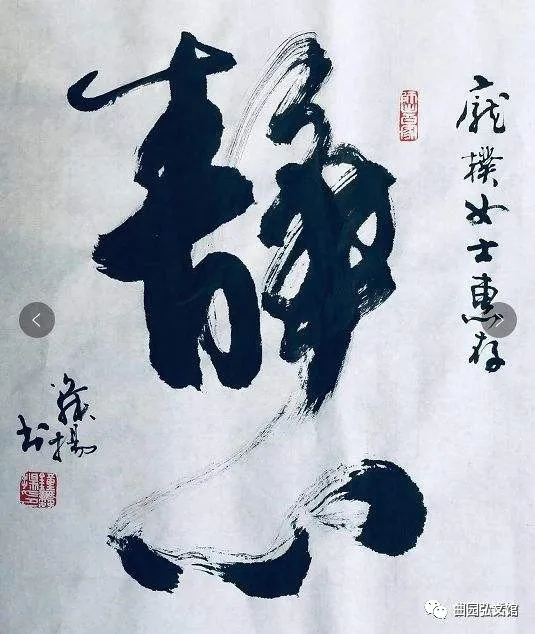 庞樸女士惠存
静心
揚书
曲园弘文馆